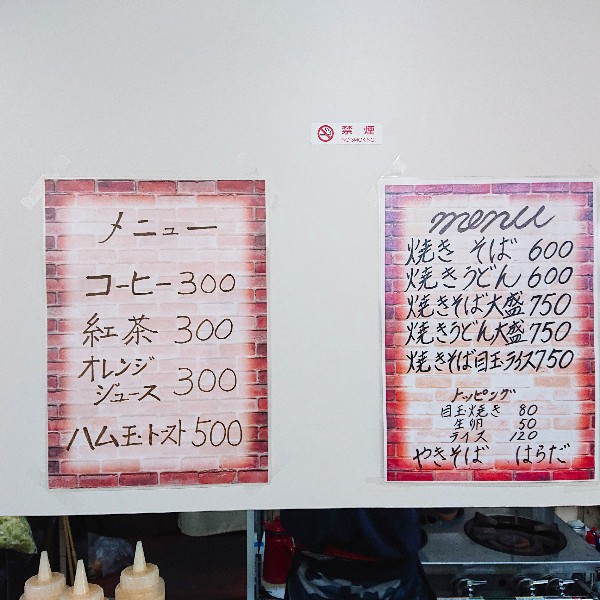 禁煙
NO SMOKING
メニュー
コーヒー 300
紅茶 300
オレンジ
ジュース 300
ハム玉トースト 500
menu
焼きそば 600
焼きうどん 600
焼きそば大盛 750
焼きうどん大盛 750
焼きそば目玉ライス 750
トッピング
目玉焼き 80
生卵 50
ライス 120
やきそば はらだ